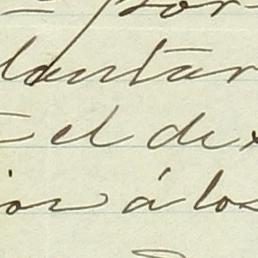 por
lantar
el de
ion á los